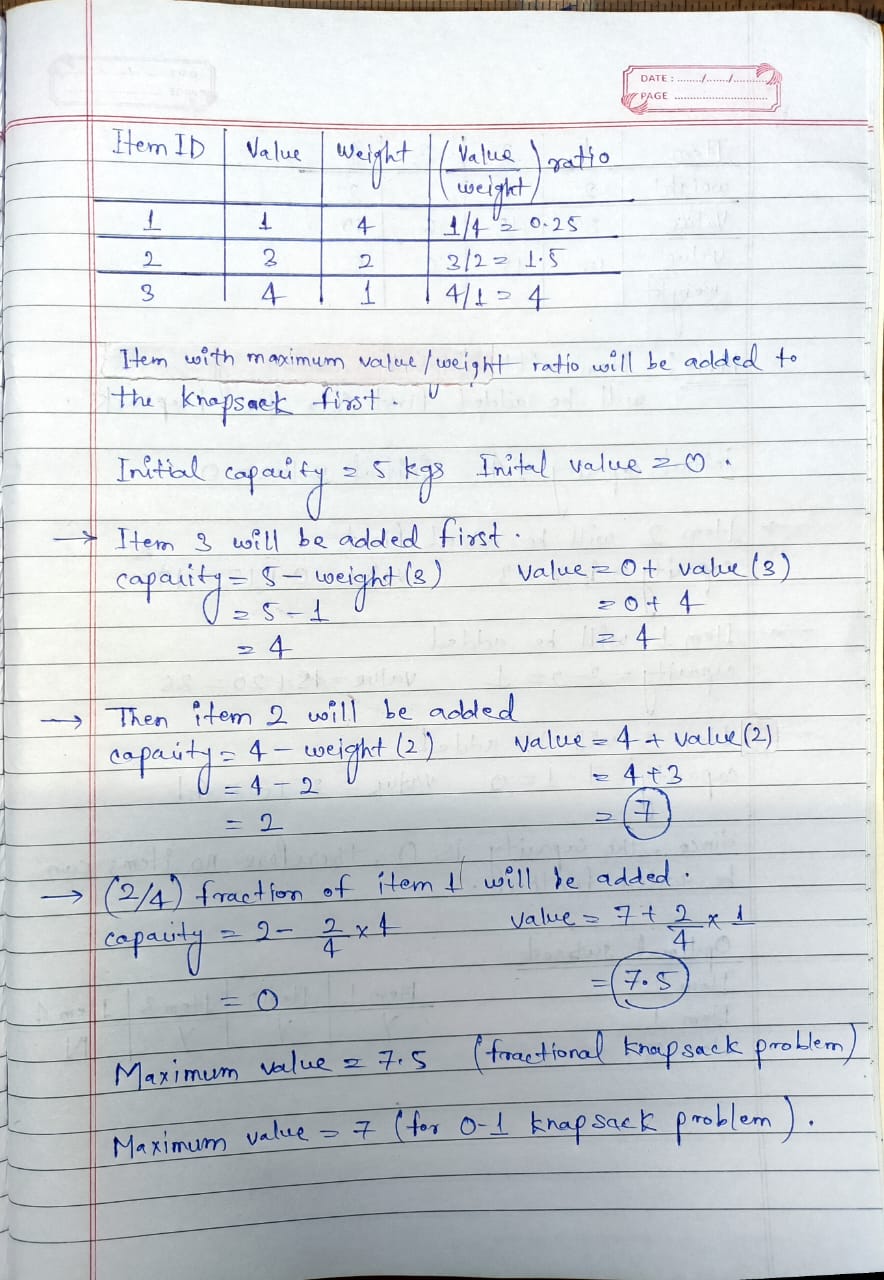 DATE : ......./......./...........
PAGE ..............................
Item ID Value Weight (Value/weight) ratio
1 1 4 1/4 = 0.25
2 3 2 3/2 = 1.5
3 4 1 4/1 = 4
Item with maximum value/weight ratio will be added to
the knapsack first.
Initial capacity = 5 kgs Inital value = 0.
→ Item 3 will be added first.
capacity = 5 - weight(3) value = 0 + value(3)
= 5 - 1 = 0 + 4
= 4 = 4
→ Then item 2 will be added
capacity = 4 - weight(2) value = 4 + value(2)
= 4 - 2 = 4 + 3
= 2 = 7
→ (2/4) fraction of item 1 will be added.
capacity = 2 - 2/4 x 4 value = 7 + 2/4 x 1
= 0 = 7.5
Maximum value = 7.5 (fractional knapsack problem)
Maximum value = 7 (for 0-1 knapsack problem).